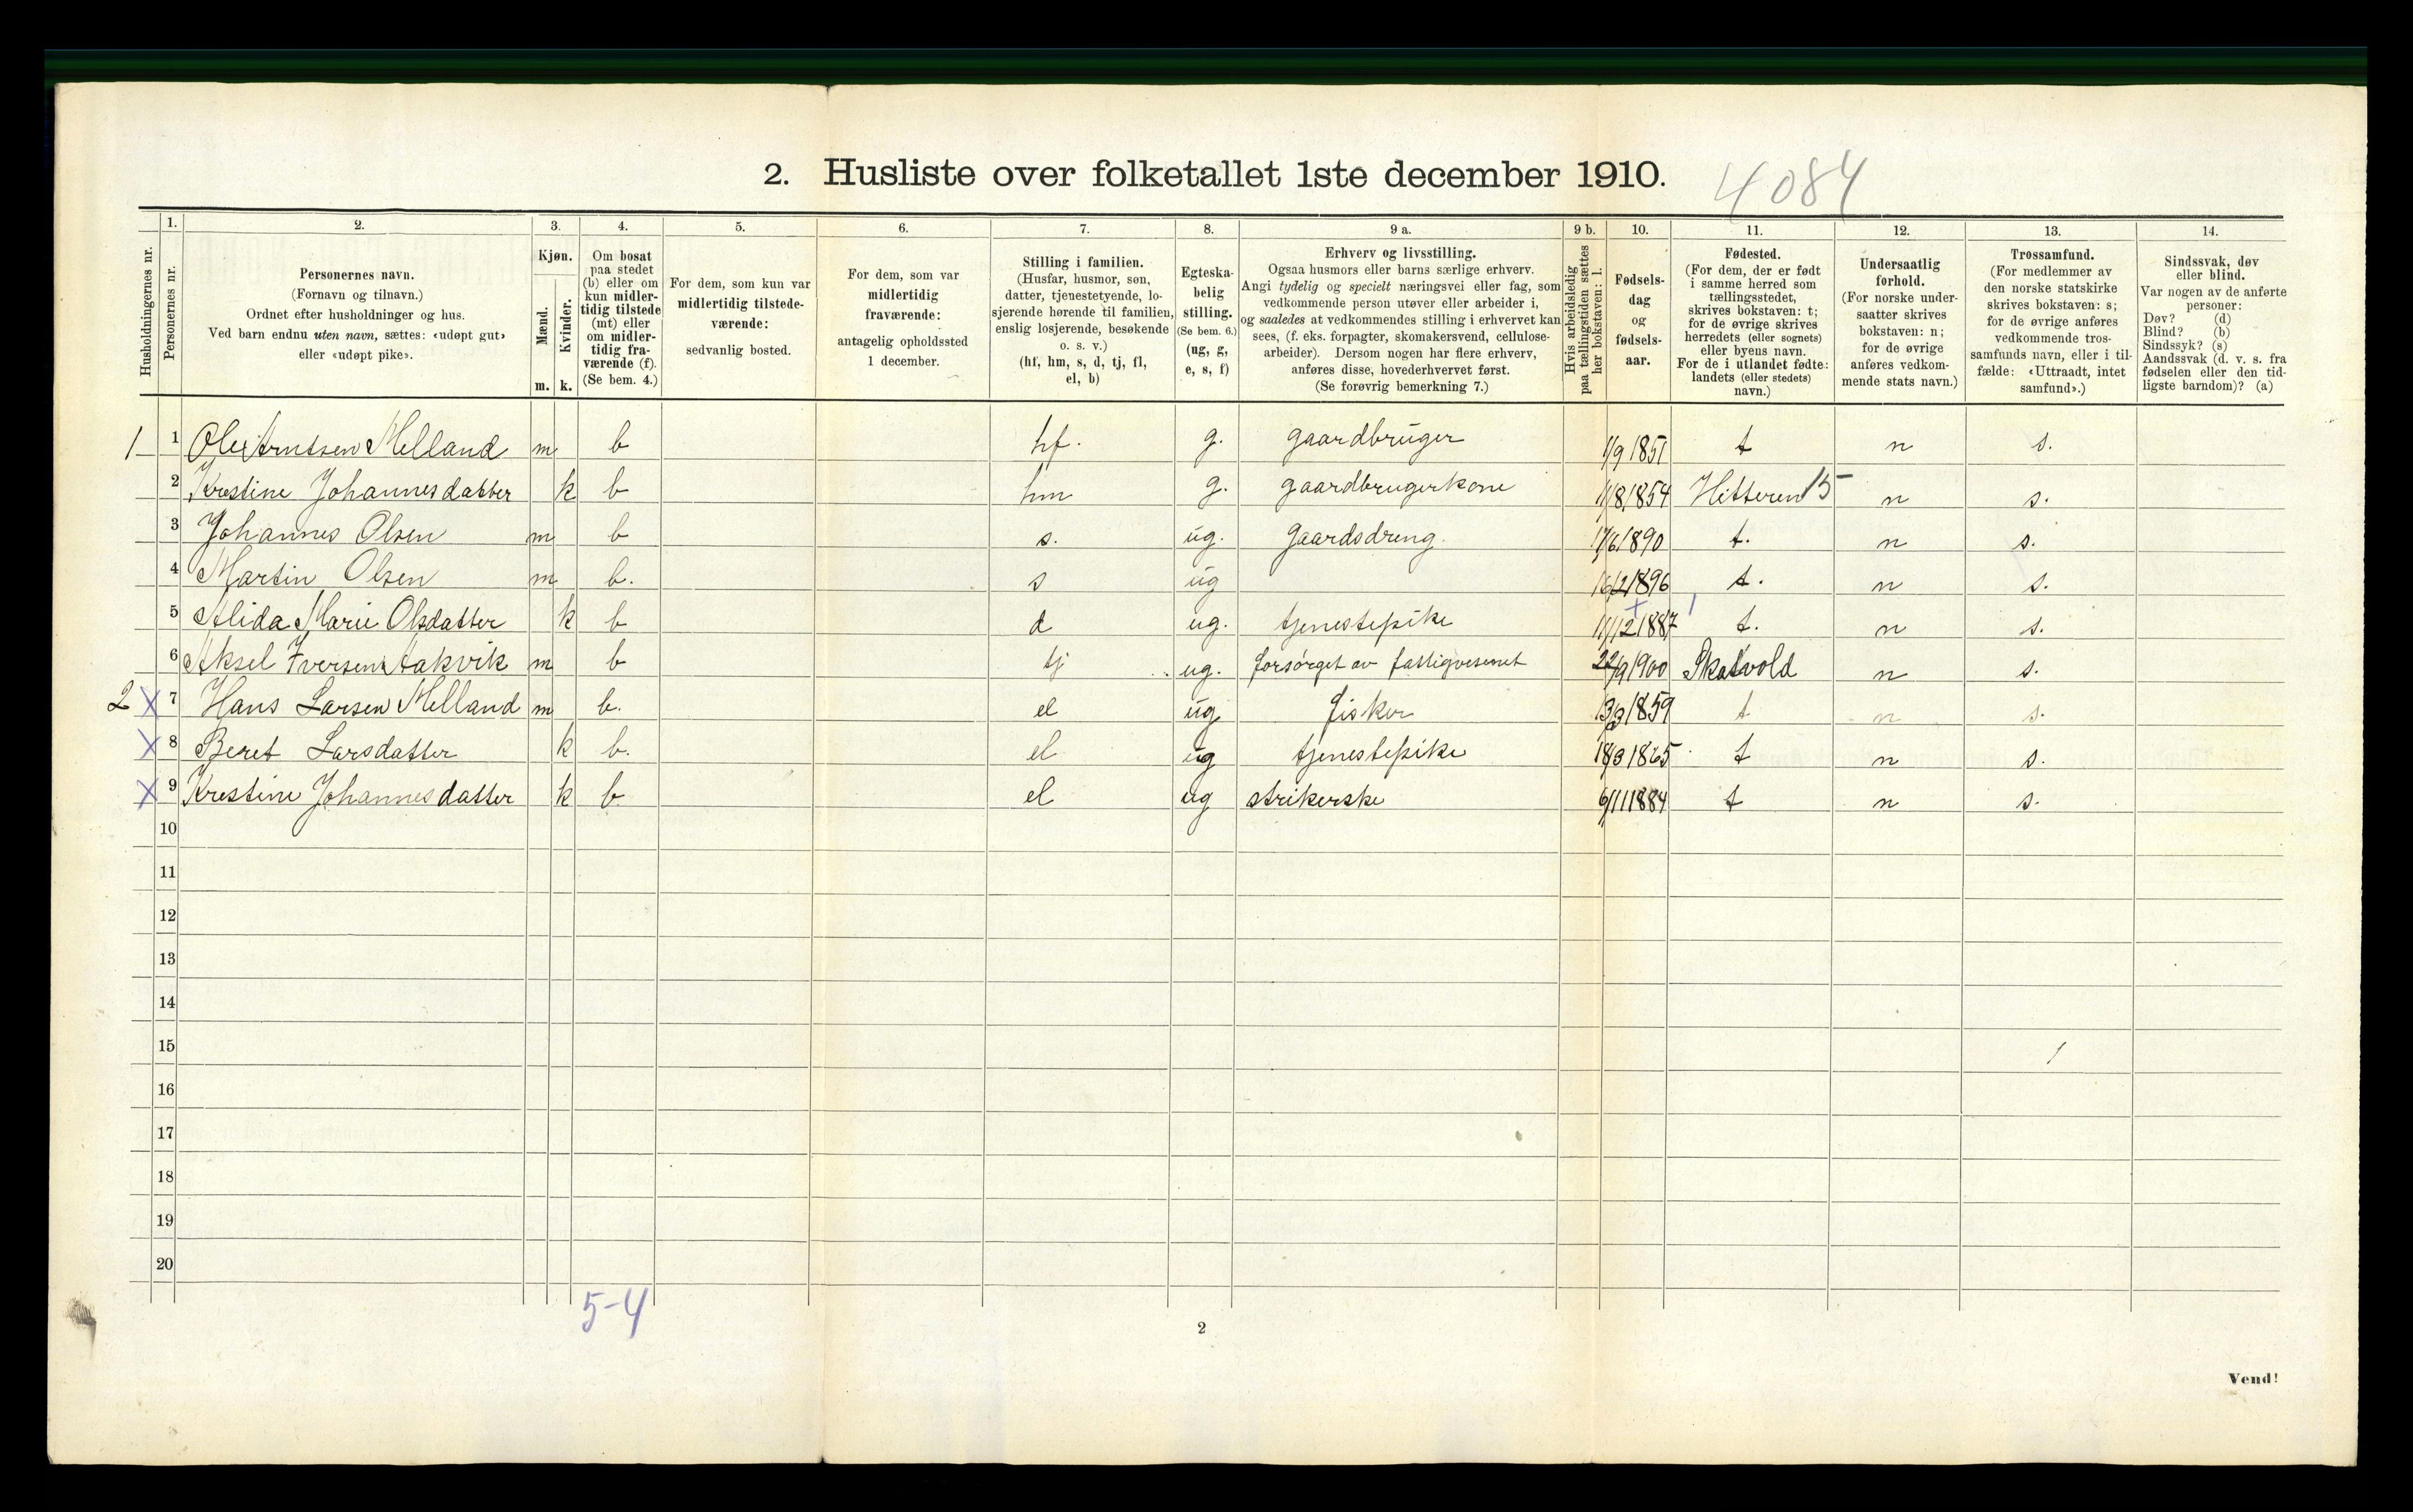 2. Husliste over folketallet 1ste december 1910.
4084
Husholdningernes nr.
1.
Personernes nr.
2.
Personernes navn.
(Fornavn og tilnavn.)
Ordnet efter husholdninger og hus.
Ved barn endnu uten navn, sættes: «udøpt gut»
eller «udøpt pike».
3.
Kjøn.
Mænd.
m.
Kvinder.
k.
4.
Om bosat
paa stedet
(b) eller om
kun midler-
tidig tilstede
(mt) eller
om midler-
tidig fra-
værende (f).
(Se bem. 4.)
5.
For dem, som kun var
midlertidig tilstede-
værende:
sedvanlig bosted.
6.
For dem, som var
midlertidig
fraværende:
antagelig opholdssted
1 december.
7.
Stilling i familien.
(Husfar, husmor, søn,
datter, tjenestetyende, lo-
sjerende hørende til familien,
enslig losjerende, besøkende
o. s. v.)
(hf, hm, s, d, tj, fl,
el, b)
8.
Egteska-
belig
stilling.
(Se bem. 6.)
(ug, g,
e, s, f)
9 a.
Erhverv og livsstilling.
Ogsaa husmors eller barns særlige erhverv.
Angi tydelig og specielt næringsvei eller fag, som
vedkommende person utøver eller arbeider i,
og saaledes at vedkommendes stilling i erhvervet kan
sees, (f. eks. forpagter, skomakersvend, cellulose-
arbeider). Dersom nogen har flere erhverv,
anføres disse, hovederhvervet først.
(Se forøvrig bemerkning 7.)
9 b.
Hvis arbeidsledig
paa tællingstiden sættes
her bokstaven: l.
10.
Fødsels-
dag
og
fødsels-
aar.
11.
Fødested.
(For dem, der er født
i samme herred som
tællingsstedet,
skrives bokstaven: t;
for de øvrige skrives
herredets (eller sognets)
eller byens navn.
For de i utlandet fødte:
landets (eller stedets)
navn.)
12.
Undersaatlig
forhold.
(For norske under-
saatter skrives
bokstaven: n;
for de øvrige
anføres vedkom-
mende stats navn.)
13.
Trossamfund.
(For medlemmer av
den norske statskirke
skrives bokstaven: s;
for de øvrige anføres
vedkommende tros-
samfunds navn, eller i til-
fælde: «Uttraadt, intet
samfund».)
14.
Sindssvak, døv
eller blind.
Var nogen av de anførte
personer:
Døv? (d)
Blind? (b)
Sindssyk? (s)
Aandssvak (d. v. s. fra
fødselen eller den tid-
ligste barndom)? (a)
1 1 Ole Arntsen Melland m b hf. g. gaardbruger 1/9 1851 t n s.
2 Krestine Johannesdatter k b hm g. gaardbrugerkone 11/8 1854 Hitteren 15 n s.
3 Johannes Olsen m b s. ug. Gaardsdreng. 17/6 1890 t. n s.
4 Martin Olsen m b. s ug 16/2 1896 t. n s.
5 Alida Marie Olsdatter k b d ug. tjenestepike 11/12 1887 t. n s.
6 Aksel Iversen Aakvik m b tj ug. forsørget av fattigvesenet 22/9 1900 Skatvold n s.
2 X 7 Hans Larsen Melland m b. el ug fisker 13/3 1859 t n s.
X 8 Beret Larsdatter k b. el ug tjenestepike 18/3 1865 t n s.
X 9 Krestine Johannesdatter k b el ug strikerske 6/11 1884 t n s.
10
11
12
13
14
15
16
17
18
19
20
5-4
2
Vend!